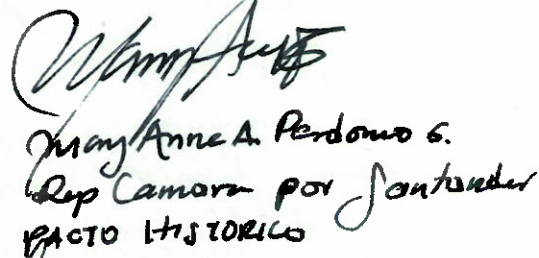 Mary Anne A. Perdomo G.
Rep Camara por Santander
PACTO HISTORICO